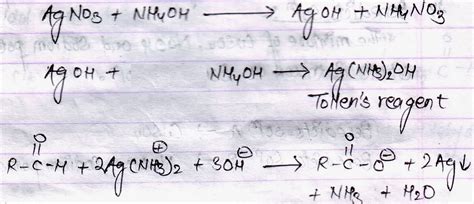 AgNO3 + NH4OH ⟶ AgOH + NH4NO3
AgOH + NH4OH ⟶ Ag(NH3)2OH
Tollen's reagent
O
R-C-H + 2Ag(NH3)2⊕ + 3OH⊖ ⟶ R-C-O⊖ + 2Ag↓
+ NH3 + H2O